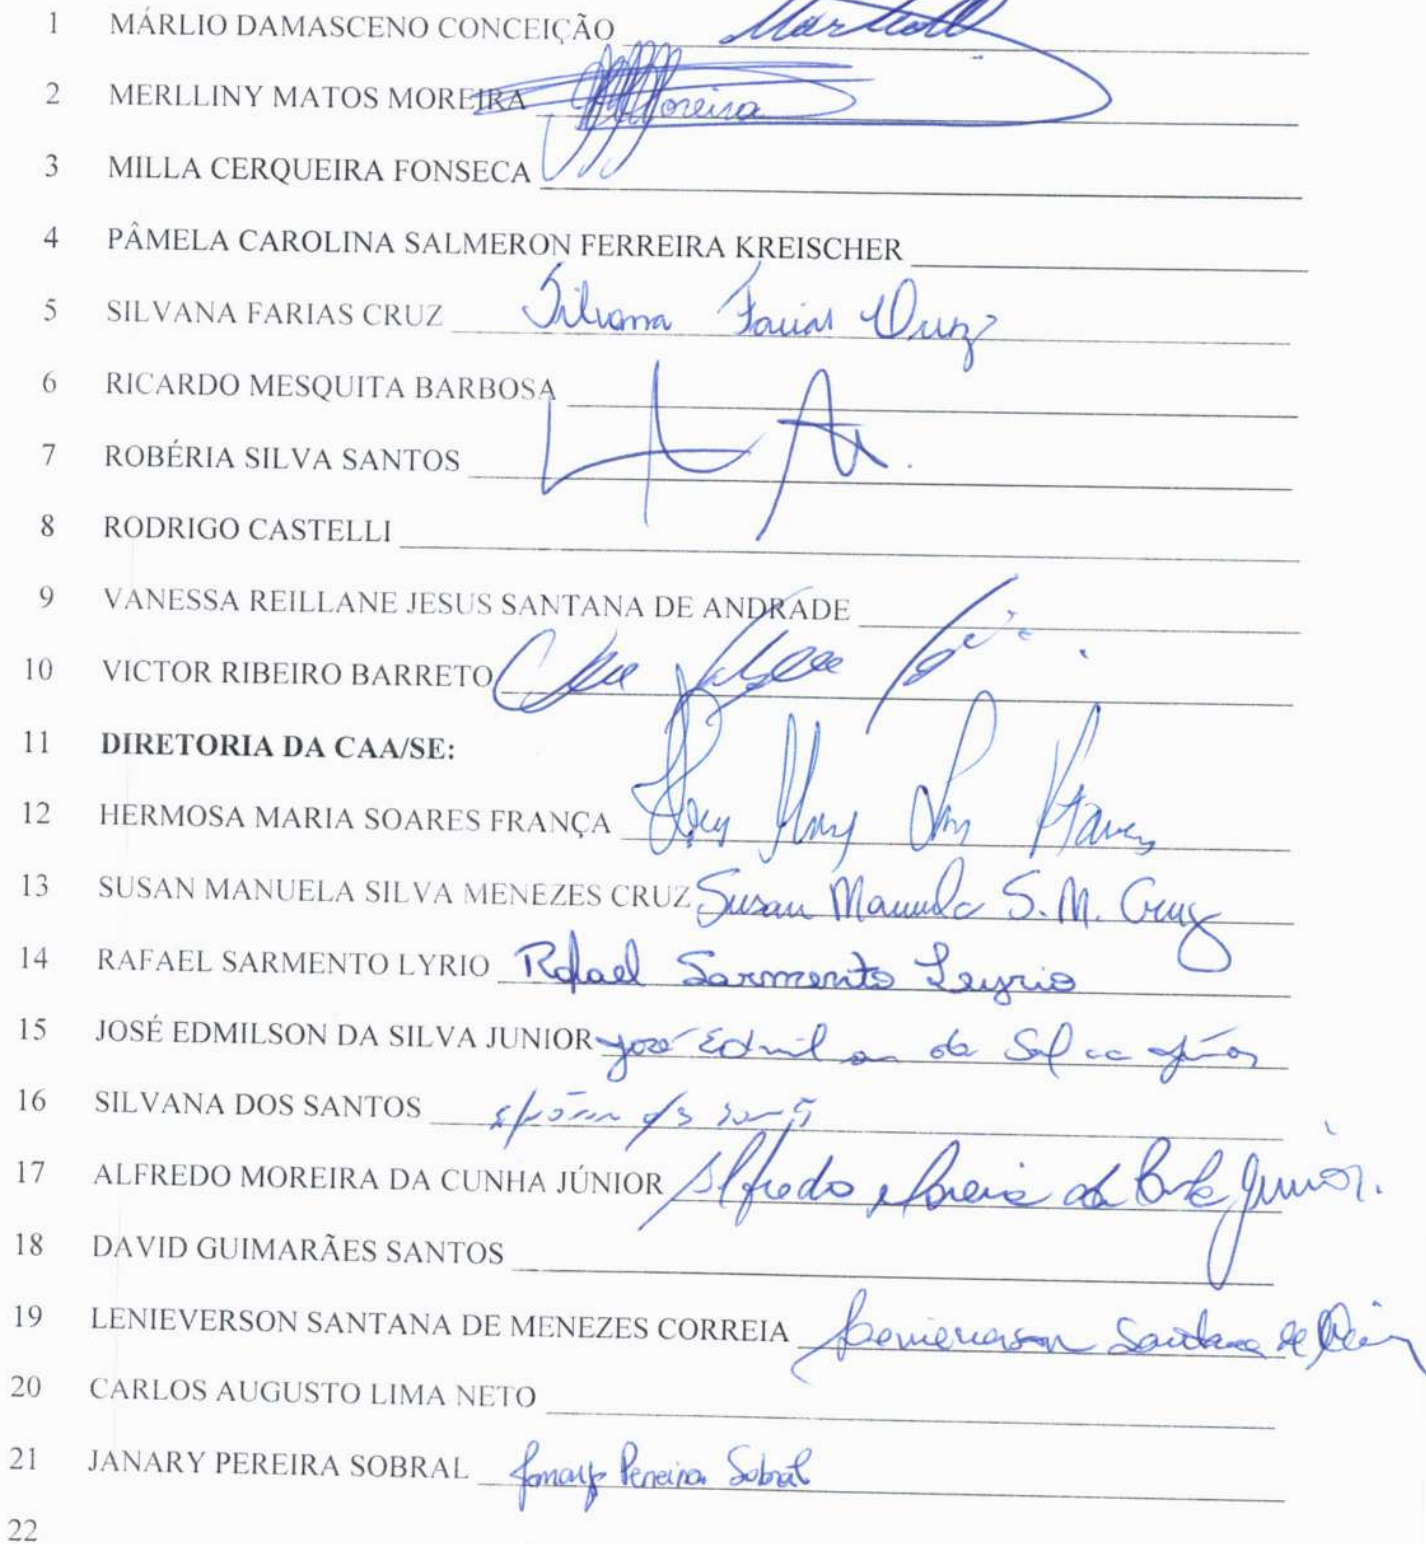 1 MÁRLIO DAMASCENO CONCEIÇÃO
2 MERLLINY MATOS MOREIRA Moreira
3 MILLA CERQUEIRA FONSECA
4 PÂMELA CAROLINA SALMERON FERREIRA KREISCHER
5 SILVANA FARIAS CRUZ Silvana Farias Cruz
6 RICARDO MESQUITA BARBOSA
7 ROBÉRIA SILVA SANTOS
8 RODRIGO CASTELLI
9 VANESSA REILLANE JESUS SANTANA DE ANDRADE
10 VICTOR RIBEIRO BARRETO
11 DIRETORIA DA CAA/SE:
12 HERMOSA MARIA SOARES FRANÇA
13 SUSAN MANUELA SILVA MENEZES CRUZ Susan Manuela S. M. Cruz
14 RAFAEL SARMENTO LYRIO Rafael Sarmento Lyrio
15 JOSÉ EDMILSON DA SILVA JUNIOR José Edmilson da Silva Júnior
16 SILVANA DOS SANTOS
17 ALFREDO MOREIRA DA CUNHA JÚNIOR Alfredo Moreira da Cunha Júnior.
18 DAVID GUIMARÃES SANTOS
19 LENIEVERSON SANTANA DE MENEZES CORREIA Lenieverson Santana de
20 CARLOS AUGUSTO LIMA NETO
21 JANARY PEREIRA SOBRAL Janary Pereira Sobral
22